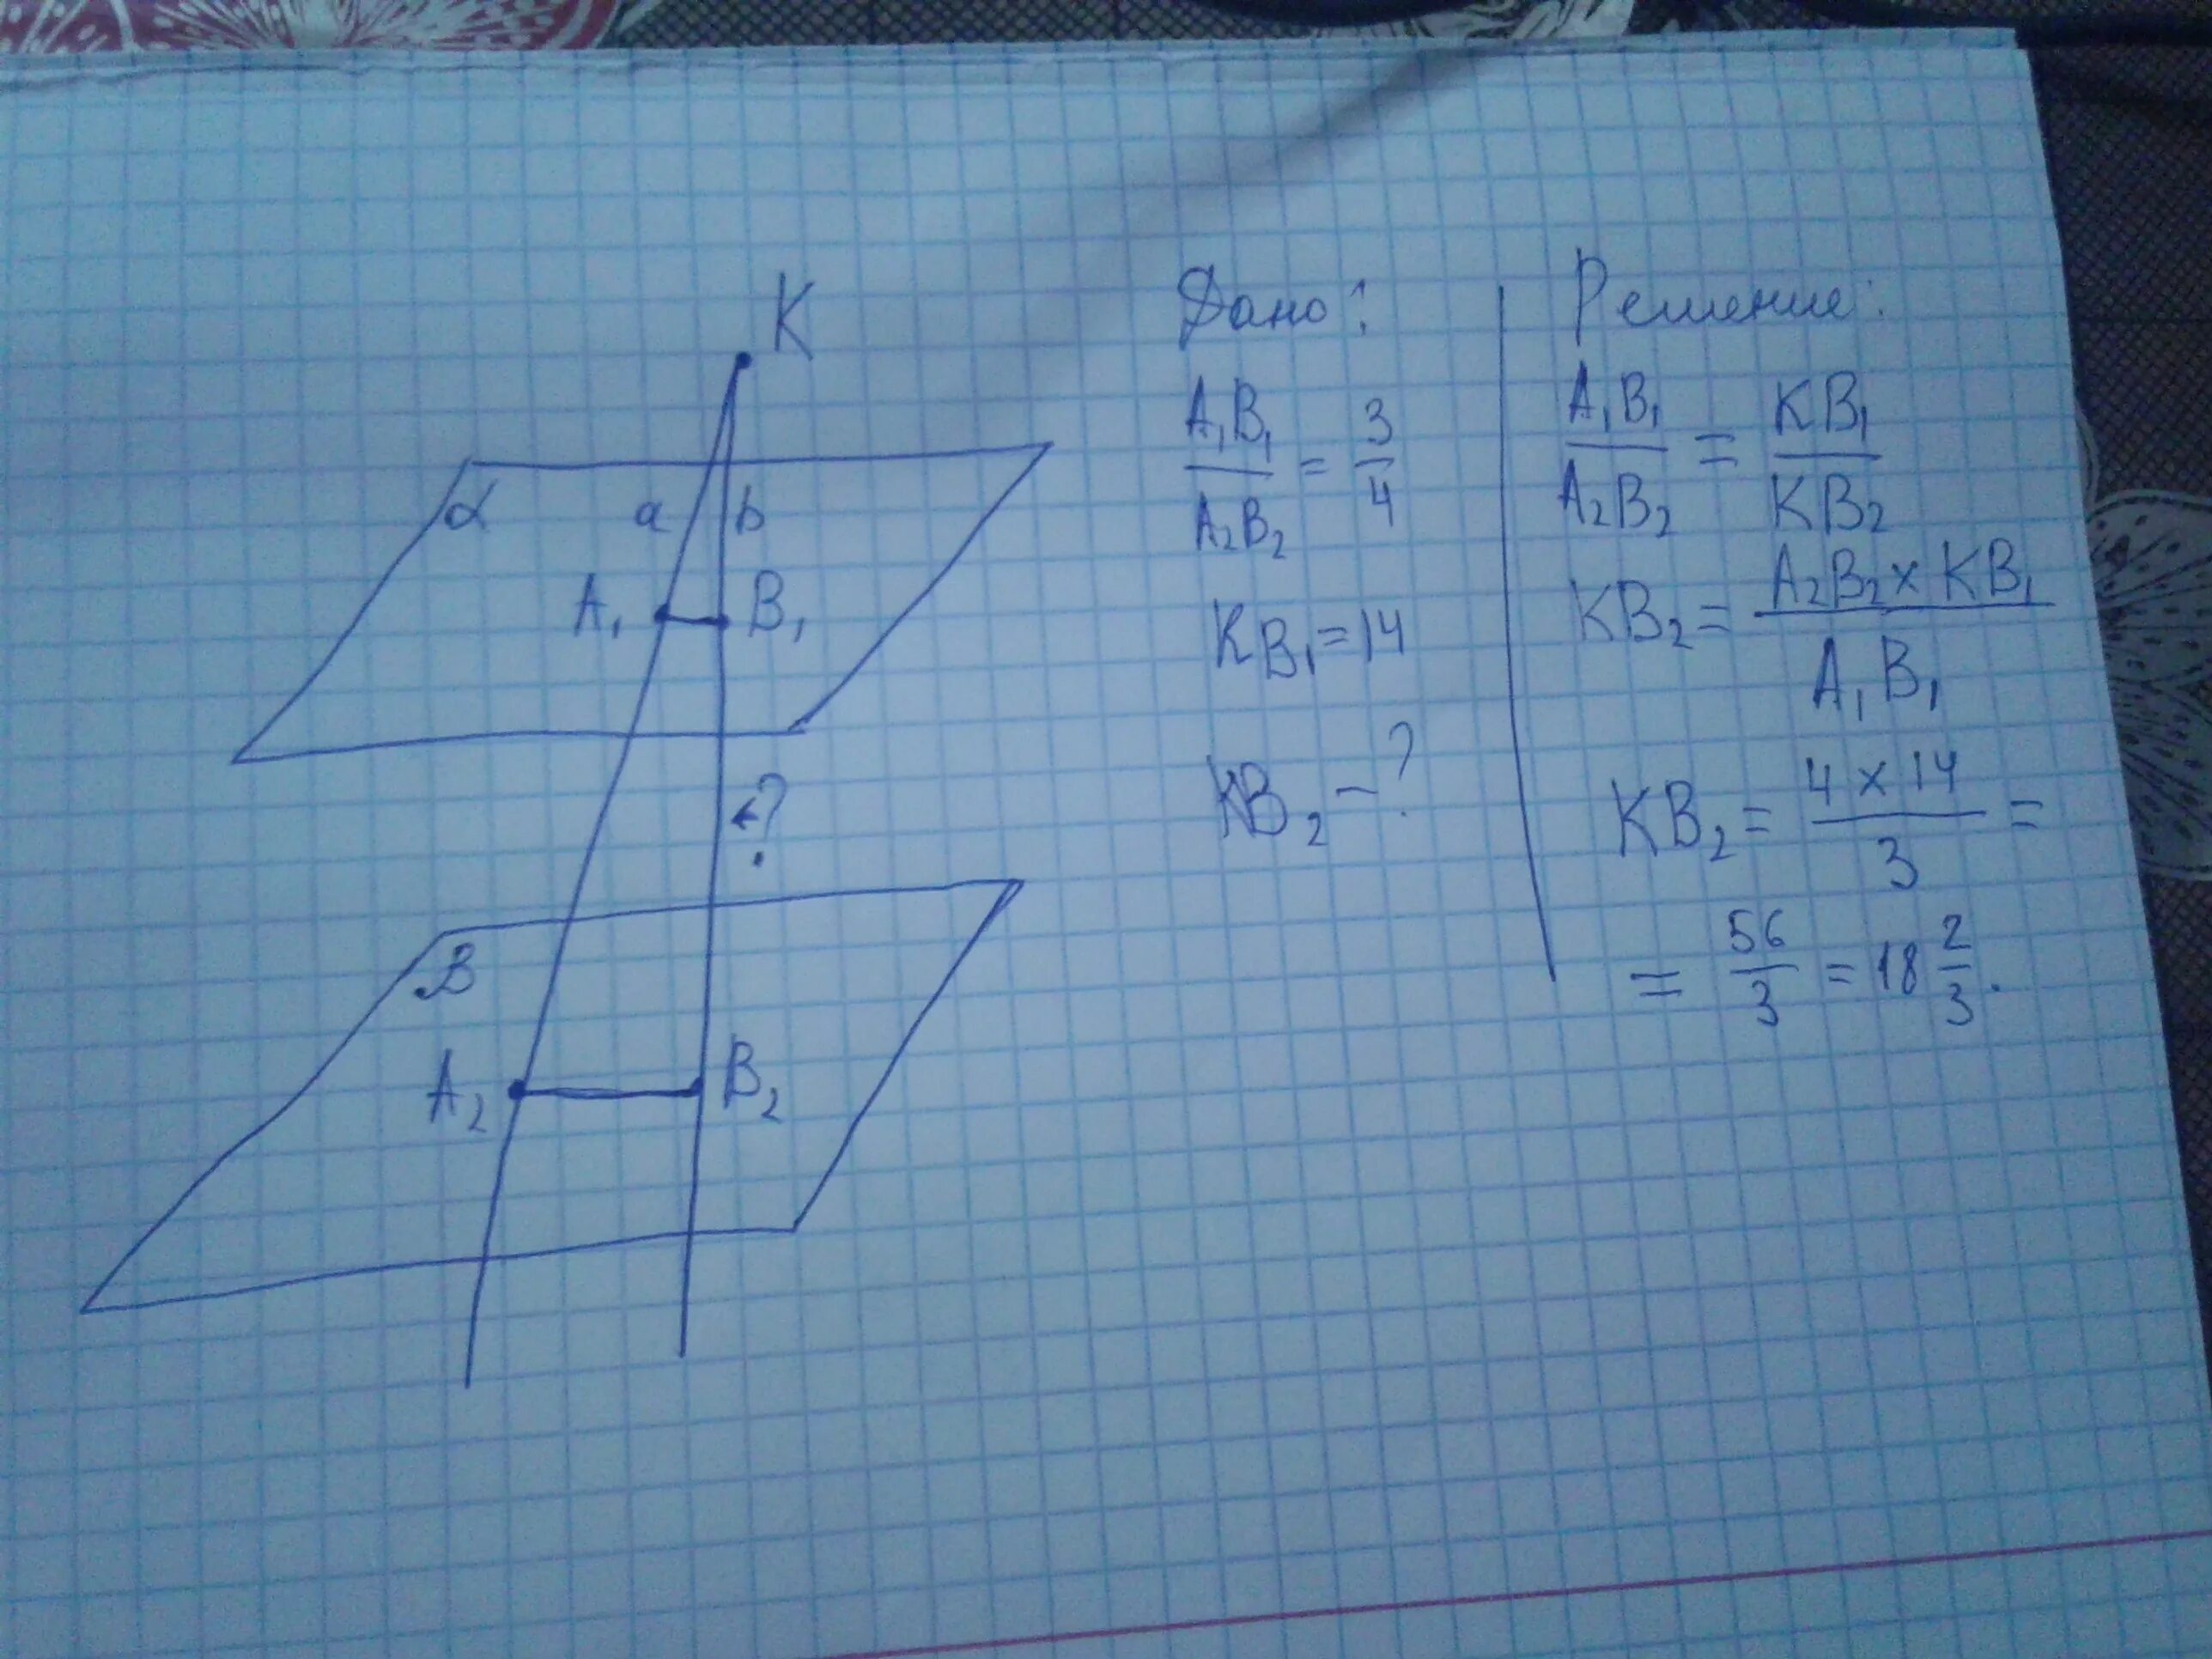 K
α a b
A₁ B₁
?
B
A₂ B₂
Дано:
A₁B₁/A₂B₂ = 3/4
KB₁ = 14
KB₂ - ?
Решение:
A₁B₁/A₂B₂ = KB₁/KB₂
KB₂ = A₂B₂ × KB₁/A₁B₁
KB₂ = 4 × 14/3 =
= 56/3 = 18 2/3.